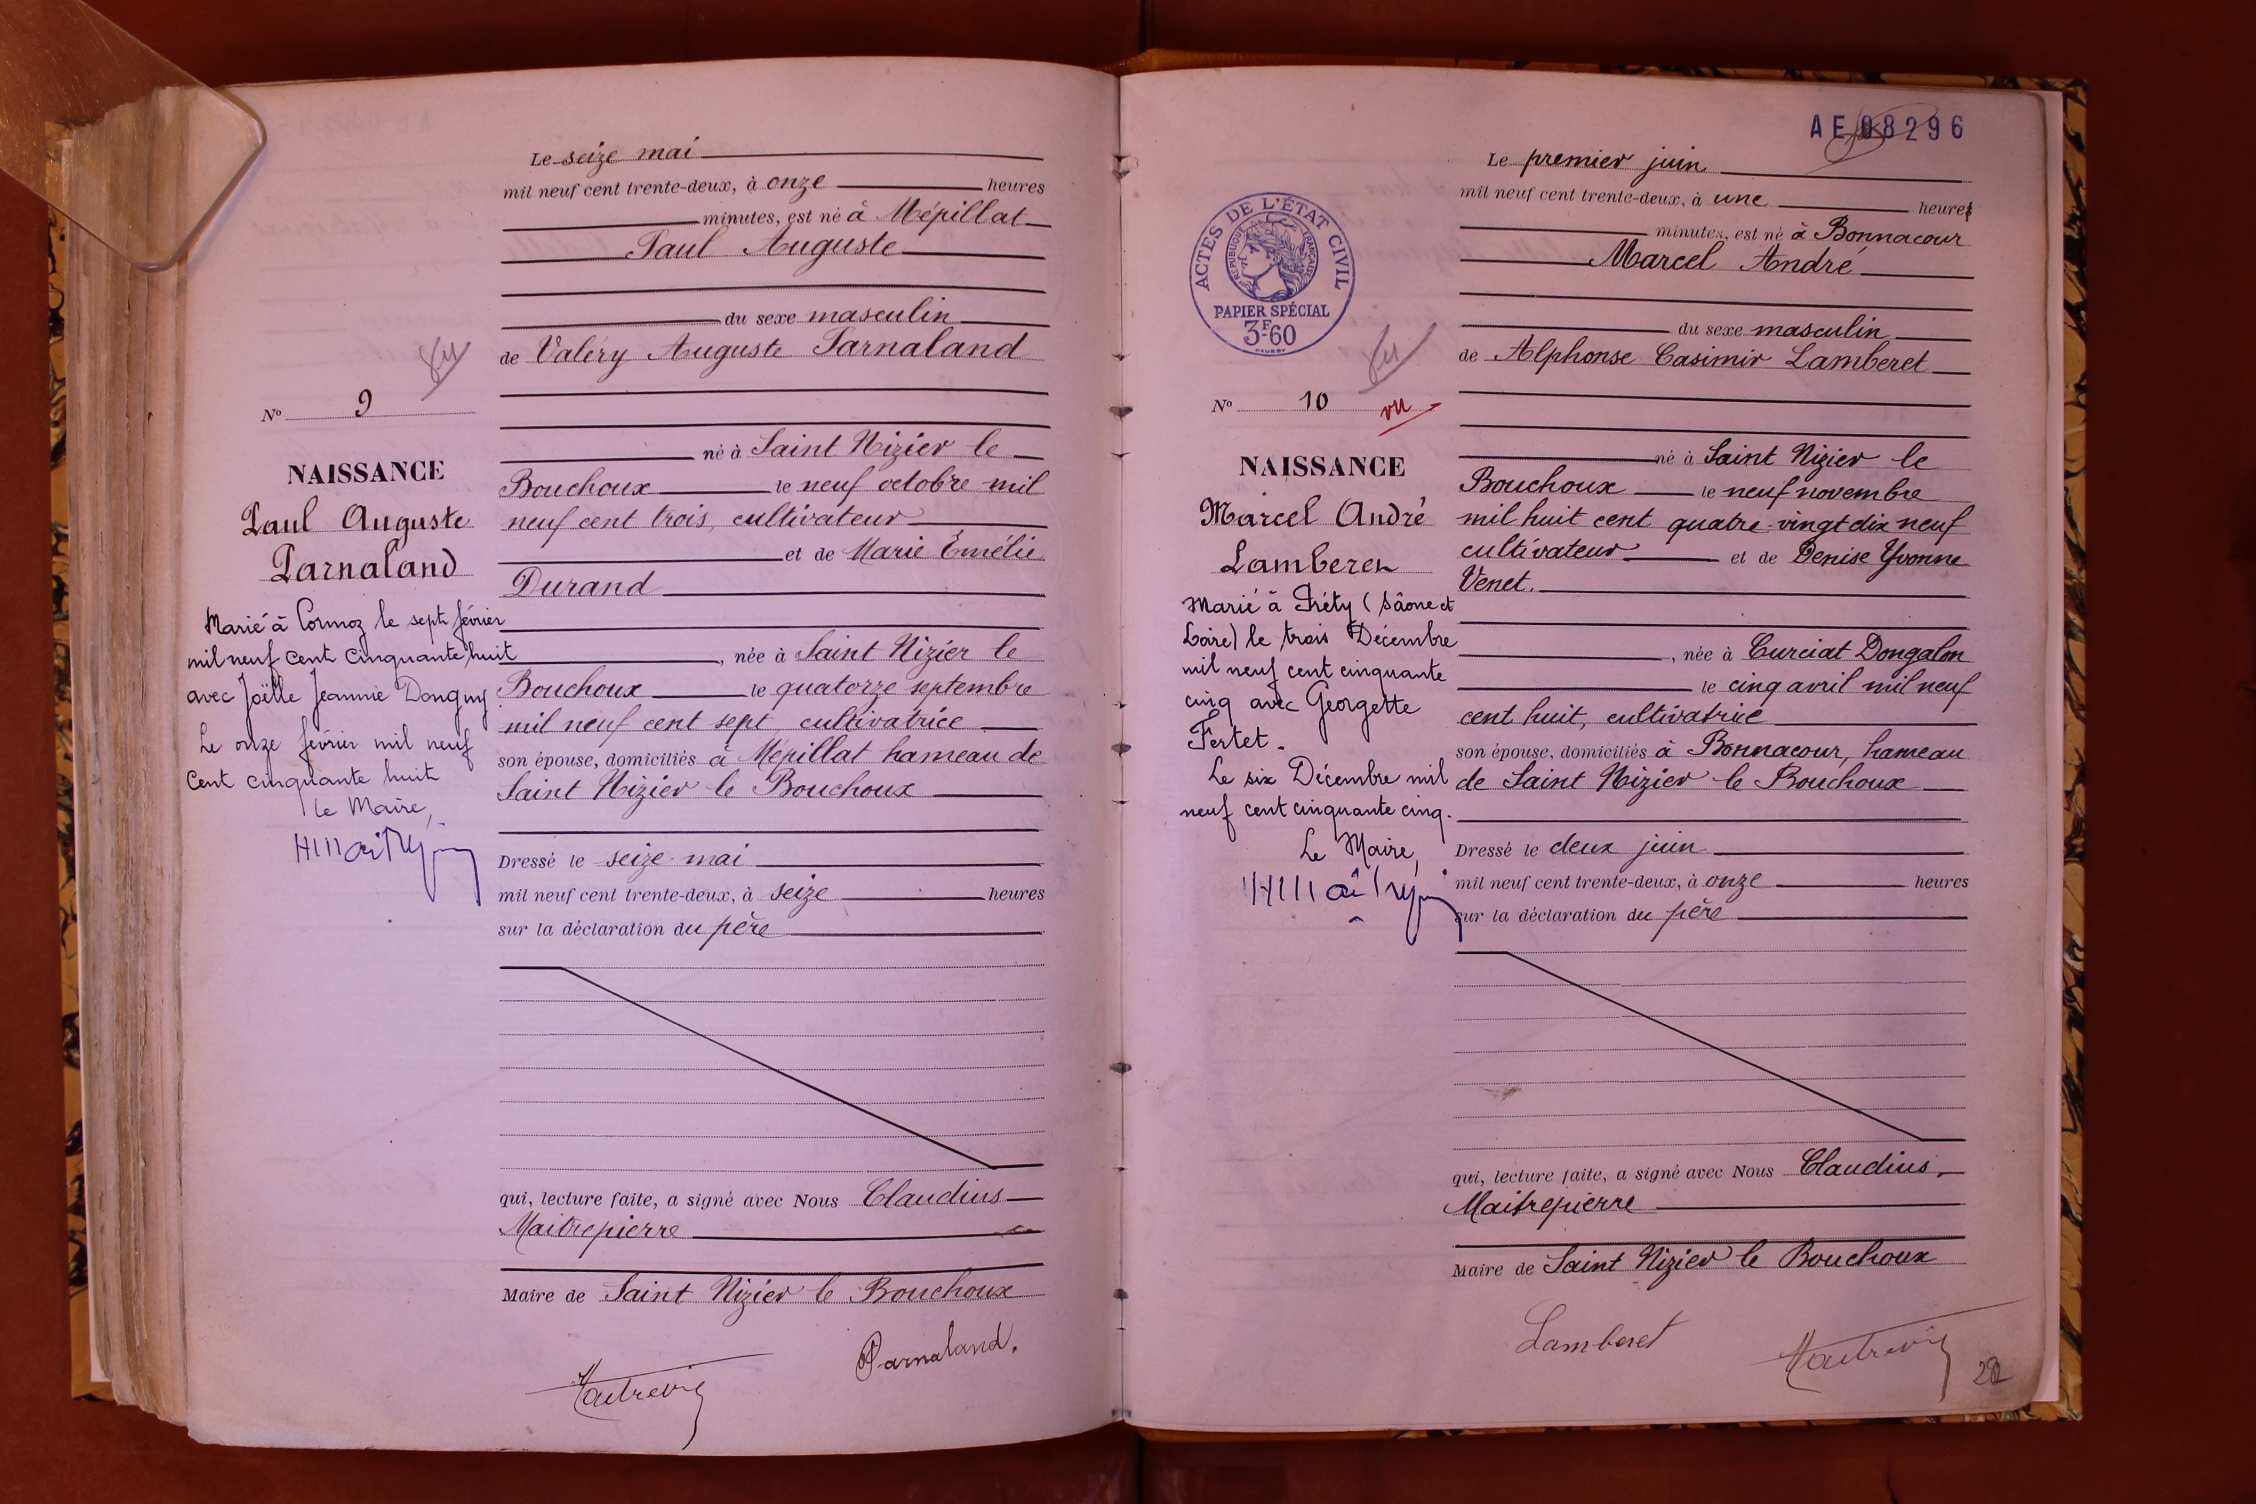 Le seize mai
mil neuf cent trente-deux, à onze heures
minutes, est né à Mépillat
Paul Auguste
du sexe masculin
de Valéry Auguste Parnaland
vu
N° 9
né à Saint Nizier le
NAISSANCE
Bouchoux le neuf octobre mil
Paul Auguste
neuf cent trois, cultivateur
Parnaland
et de Marie Émélie
Durand
Marié à Cormoz le sept février
mil neuf cent cinquante huit
avec Joëlle Jeannie Donguy
Le onze février mil neuf
cent cinquante huit
le Maire,
, née à Saint Nizier le
Bouchoux le quatorze septembre
mil neuf cent sept, cultivatrice
son épouse, domiciliés à Mépillat hameau de
Saint Nizier le Bouchoux
Dressé le seize mai
mil neuf cent trente-deux, à seize heures
sur la déclaration du père
qui, lecture faite, a signé avec Nous Claudius
Maitrepierre
Maire de Saint Nizier le Bouchoux
Parnaland.
AE 08296
Le premier juin
mil neuf cent trente-deux, à une heure
minutes, est né à Bonnacour
Marcel André
ACTES DE L'ÉTAT CIVIL
RÉPUBLIQUE FRANÇAISE
PAPIER SPÉCIAL
3F-60
du sexe masculin
de Alphonse Casimir Lamberet
vu
N° 10 vu
né à Saint Nizier le
NAISSANCE
Bouchoux le neuf novembre
Marcel André
mil huit cent quatre-vingt dix neuf
Lamberet
cultivateur et de Denise Yvonne
Venet.
Marié à Préty (Sâone et
Loire) le trois Décembre
mil neuf cent cinquante
cinq avec Georgette
Fertet.
Le six Décembre mil
neuf cent cinquante cinq.
Le Maire,
, née à Curciat Dongalon
le cinq avril mil neuf
cent huit, cultivatrice
son épouse, domiciliés à Bonnacour, hameau
de Saint Nizier le Bouchoux
Dressé le deux juin
mil neuf cent trente-deux, à onze heures
sur la déclaration du père
qui, lecture faite, a signé avec Nous Claudius
Maitrepierre
Maire de Saint Nizier le Bouchoux
Lamberet